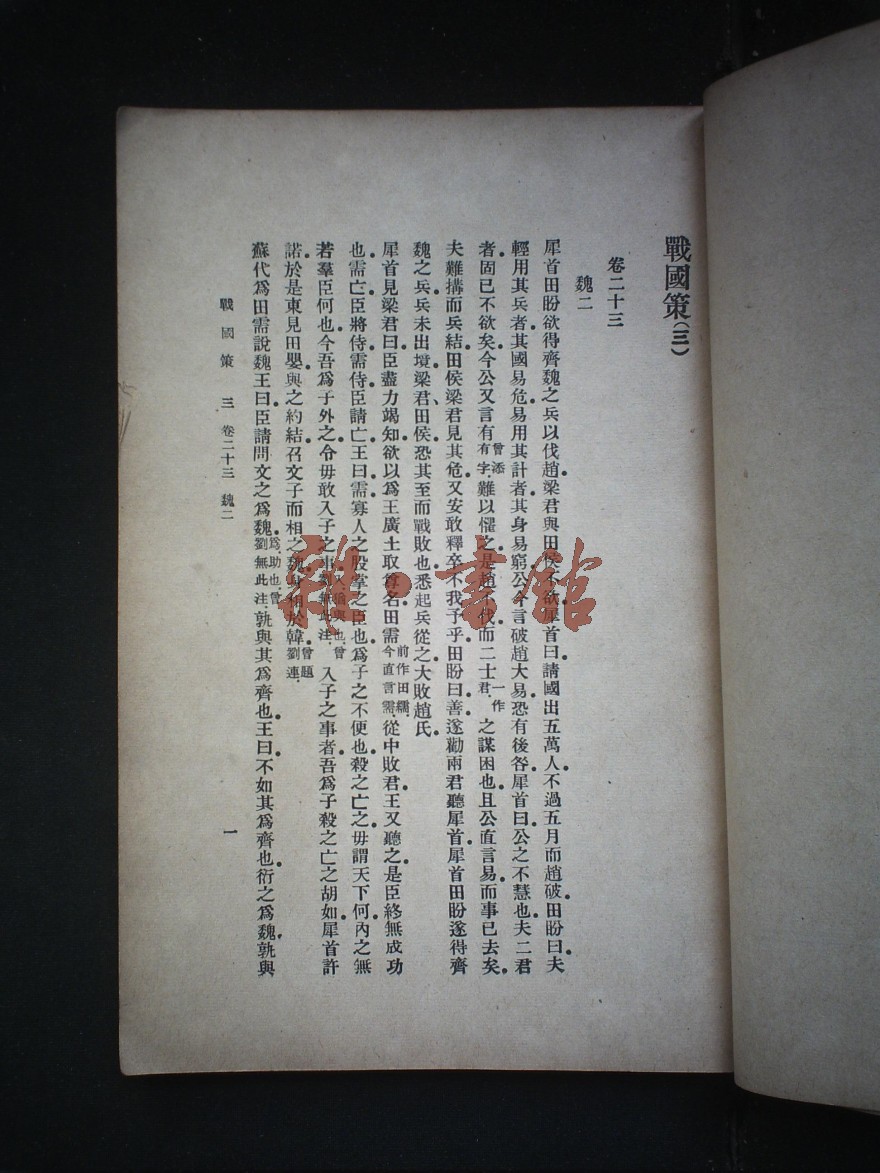 戰國策(三)
卷二十三
魏二
犀首田盼欲得齊魏之兵以伐趙梁君與田侯不欲犀首曰請國出五萬人不過五月而趙破田盼曰夫
輕用其兵者其國易危易用其計者其身易窮公今言破趙大易恐有後咎犀首曰公之不慧也夫二君
者固已不欲矣今公又言有曾添有字難以懼之是趙不伐而二士一作君之謀困也且公直言易而事已去矣
夫難搆而兵結田侯梁君見其危又安敢釋卒不我予乎田盼曰善遂勸兩君聽犀首犀首田盼遂得齊
魏之兵兵未出境梁君田侯恐其至而戰敗也悉起兵從之大敗趙氏
犀首見梁君曰臣盡力竭知欲以爲王廣土取尊名田需前作田繻今直言需從中敗君王又聽之是臣終無成功
也需亡臣將侍需侍臣請亡王曰需寡人之股掌之臣也爲子之不便也殺之亡之毋謂天下何內之無
若羣臣何也今吾爲子外之令毋敢入子之事入猶與也曾劉無此注入子之事者吾爲子殺之亡之胡如犀首許
諾於是東見田嬰與之約結召文子而相之魏身相於韓曾題劉連
蘇代爲田需說魏王曰臣請問文之爲魏爲助也曾劉無此注孰與其爲齊也王曰不如其爲齊也衍之爲魏孰與
戰國策 三 卷二十三 魏二 一
雜·書館